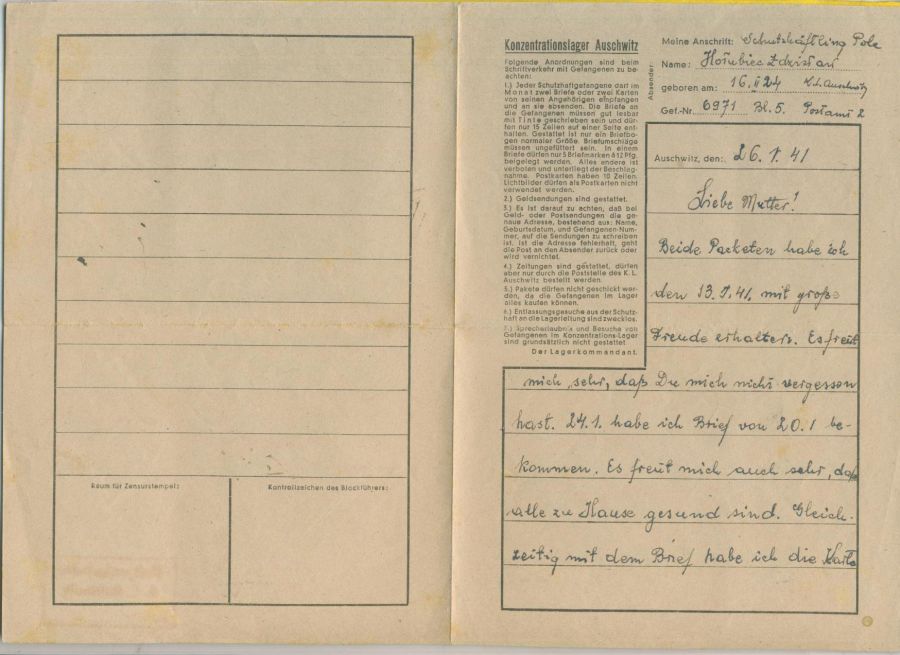 Raum für Zensurstempel:
Kontrollzeichen des Blockführers:
Konzentrationslager Auschwitz
Folgende Anordnungen sind beim
Schriftverkehr mit Gefangenen zu be-
achten:
1.) Jeder Schutzhaftgefangene darf im
Monat zwei Briefe oder zwei Karten
von seinen Angehörigen empfangen
und an sie absenden. Die Briefe an
die Gefangenen müssen gut lesbar
mit Tinte geschrieben sein und dür-
fen nur 15 Zeilen auf einer Seite ent-
halten. Gestattet ist nur ein Briefbo-
gen normaler Größe. Briefumschläge
müssen ungefüttert sein. In einem
Briefe dürfen nur 5 Briefmarken à 12 Pfg.
beigelegt werden. Alles andere ist
verboten und unterliegt der Beschlag-
nahme. Postkarten haben 10 Zeilen.
Lichtbilder dürfen als Postkarten nicht
verwendet werden.
2.) Geldsendungen sind gestattet.
3.) Es ist darauf zu achten, daß bei
Geld- oder Postsendungen die ge-
naue Adresse, bestehend aus: Name,
Geburtsdatum, und Gefangenen-Num-
mer, auf die Sendungen zu schreiben
ist. Ist die Adresse fehlerhaft, geht
die Post an den Absender zurück oder
wird vernichtet.
4.) Zeitungen sind gestattet, dürfen
aber nur durch die Poststelle des K. L.
Auschwitz bestellt werden.
5.) Pakete dürfen nicht geschickt wer-
den, da die Gefangenen im Lager
alles kaufen können.
6.) Entlassungsgesuche aus der Schutz-
haft an die Lagerleitung sind zwecklos.
7.) Sprecherlaubnis und Besuche von
Gefangenen im Konzentrations-Lager
sind grundsätzlich nicht gestattet.
Der Lagerkommandant.
Absender:
Meine Anschrift: Schutzhäftling Pole
Name:
geboren am: 16. II 24 K.L. Auschwitz
Gef.-Nr. 6971 Bl. 5. Postamt 2
Auschwitz, den: 26. 1. 41
Liebe Mutter!
Beide Packeten habe ich
den 13.1.41. mit große
Freude erhalten. Es freut
mich sehr, daß Du mich nicht vergessen
hast. 24.1. habe ich Brief von 20.1 be-
kommen. Es freut mich auch sehr, daß
alle zu Hause gesund sind. Gleich-
zeitig mit dem Brief habe ich die Karte